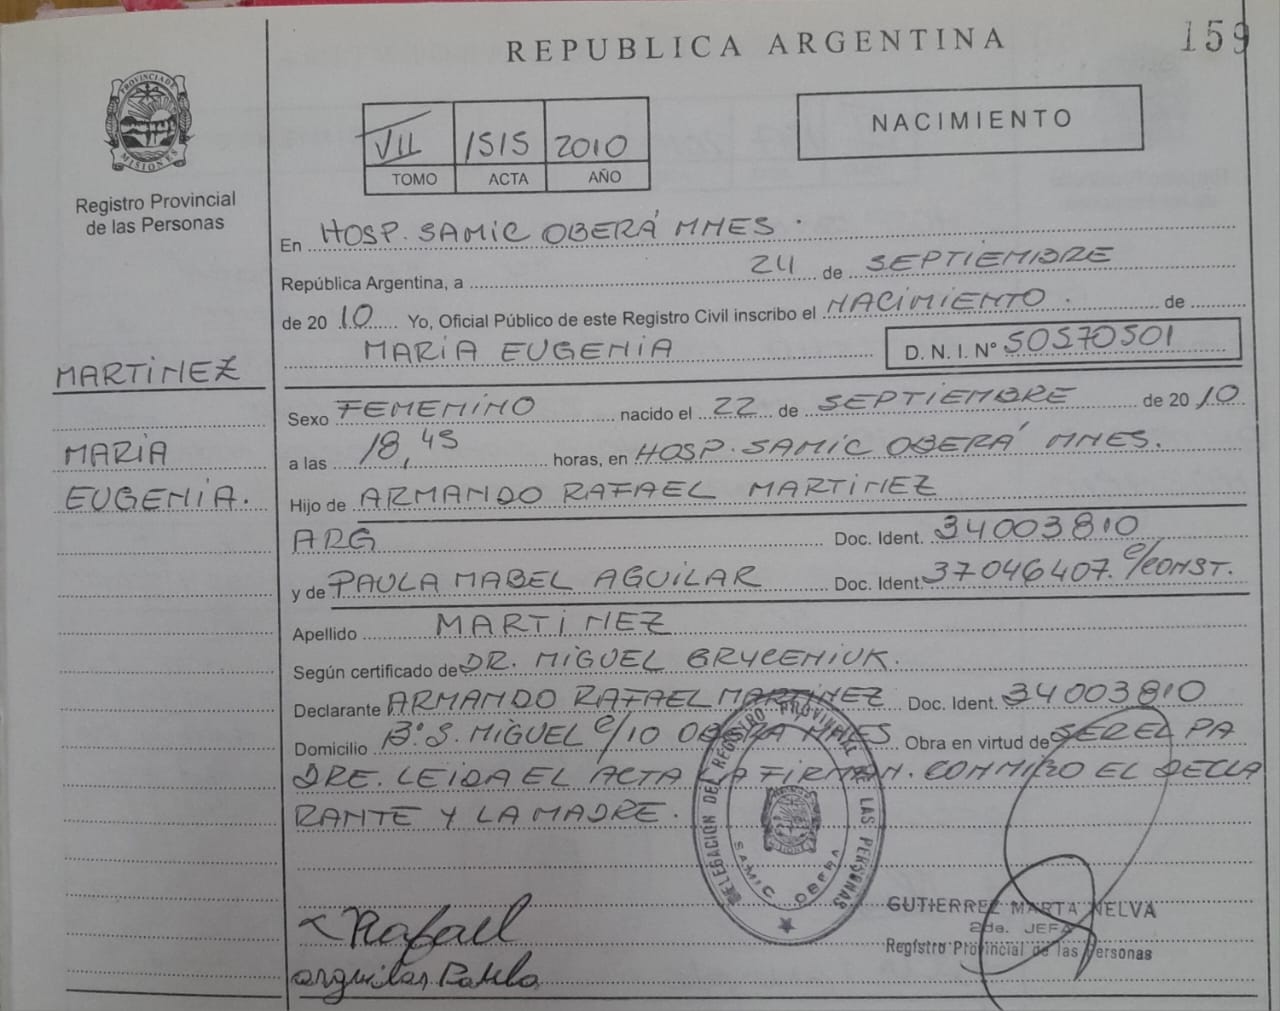 REPUBLICA ARGENTINA
159
PROVINCIA DE MISIONES
Registro Provincial
de las Personas
VII 1515 2010
TOMO ACTA AÑO
NACIMIENTO
En HOSP. SAMIC OBERÁ MNES.
República Argentina, a 24 de SEPTIEMBRE
de 2010 Yo, Oficial Público de este Registro Civil inscribo el NACIMIENTO. de
MARIA EUGENIA D.N.I. Nº 50570501
MARTINEZ
MARIA
EUGENIA.
Sexo FEMENINO nacido el 22 de SEPTIEMBRE de 2010
a las 18,45 horas, en HOSP. SAMIC OBERÁ MNES.
Hijo de ARMANDO RAFAEL MARTINEZ
ARG Doc. Ident. 34003810
y de PAULA MABEL AGUILAR Doc. Ident. 37046407. C/CONST.
Apellido MARTINEZ
Según certificado de DR. MIGUEL BRYCENIUK.
Declarante ARMANDO RAFAEL MARTINEZ Doc. Ident. 34003810
Domicilio Bº S. MIGUEL C/10 OBERA MNES Obra en virtud de SER EL PA
DRE. LEIDA EL ACTA LA FIRMAN. CONMIGO EL DECLA
RANTE Y LA MADRE.
DELEGACION DEL REGISTRO PROVINCIAL DE LAS PERSONAS
SAMIC OBERA
Rafael
GUTIERREZ MARTA NELVA
2da. JEFA
Registro Provincial de las Personas